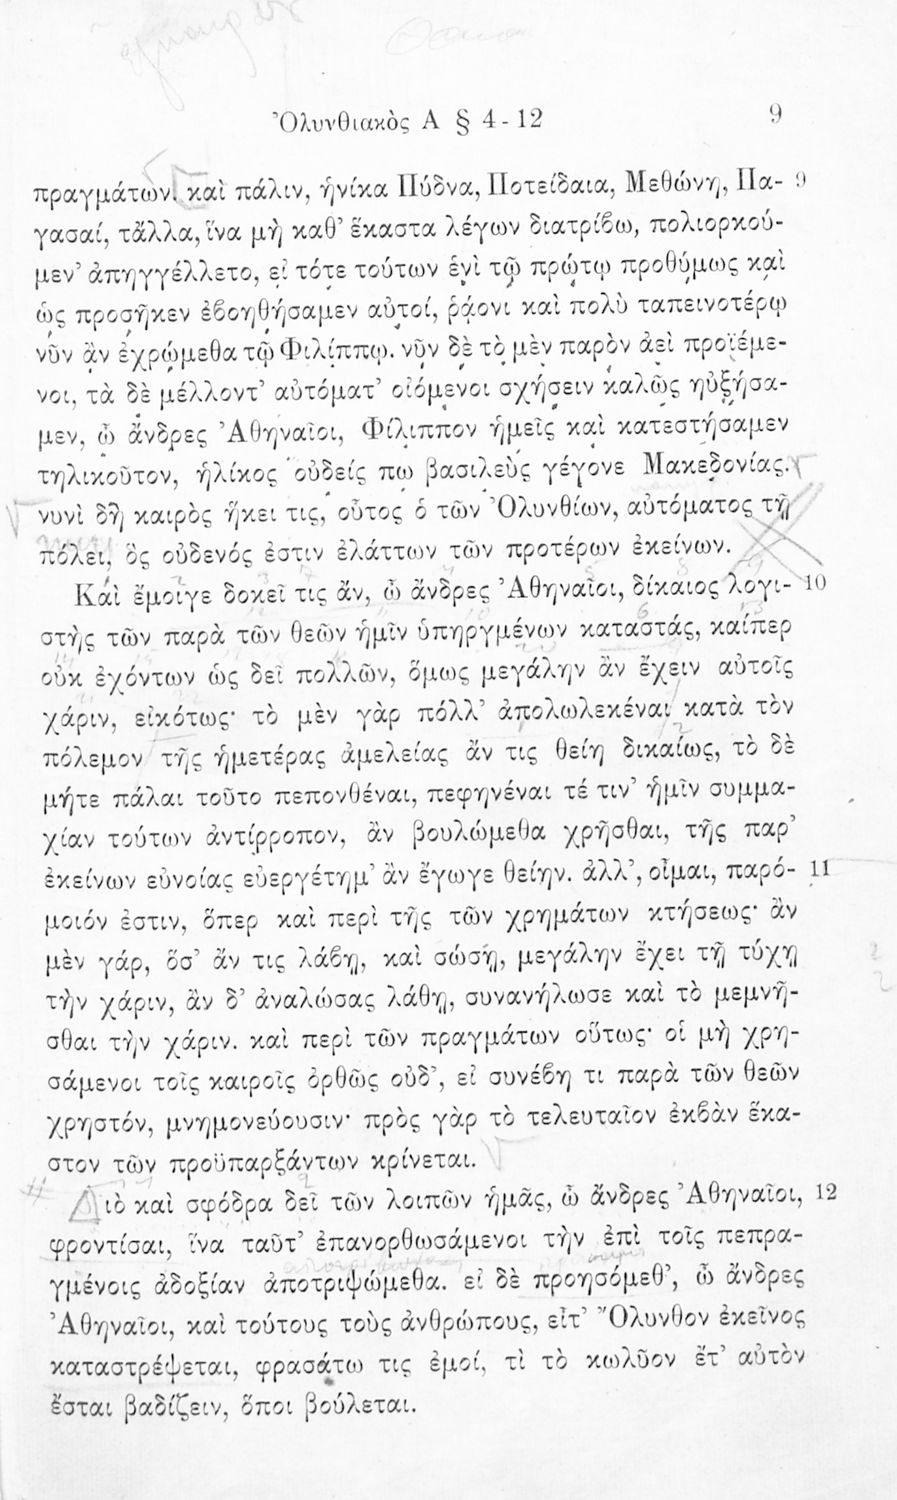 Ὀλυνθιακὸς Α § 4-12 9
πραγμάτων. καὶ πάλιν, ἡνίκα Πύδνα, Ποτείδαια, Μεθώνη, Πα- 9
γασαί, τἄλλα, ἵνα μὴ καθ’ ἕκαστα λέγων διατρίβω, πολιορκού-
μεν’ ἀπηγγέλλετο, εἰ τότε τούτων ἑνὶ τῷ πρώτῳ προθύμως καὶ
ὡς προσῆκεν ἐβοηθήσαμεν αὐτοί, ῥᾴονι καὶ πολὺ ταπεινοτέρῳ
νῦν ἂν ἐχρώμεθα τῷ Φιλίππῳ. νῦν δὲ τὸ μὲν παρὸν ἀεὶ προϊέμε-
νοι, τὰ δὲ μέλλοντ’ αὐτόματ’ οἰόμενοι σχήσειν καλῶς ηὐξήσα-
μεν, ὦ ἄνδρες Ἀθηναῖοι, Φίλιππον ἡμεῖς καὶ κατεστήσαμεν
τηλικοῦτον, ἡλίκος οὐδείς πω βασιλεὺς γέγονε Μακεδονίας.
νυνὶ δὴ καιρὸς ἥκει τις, οὗτος ὁ τῶν Ὀλυνθίων, αὐτόματος τῇ
πόλει, ὃς οὐδενός ἐστιν ἐλάττων τῶν προτέρων ἐκείνων.
Καὶ ἔμοιγε δοκεῖ τις ἄν, ὦ ἄνδρες Ἀθηναῖοι, δίκαιος λογι- 10
στὴς τῶν παρὰ τῶν θεῶν ἡμῖν ὑπηργμένων καταστάς, καίπερ
οὐκ ἐχόντων ὡς δεῖ πολλῶν, ὅμως μεγάλην ἂν ἔχειν αὐτοῖς
χάριν, εἰκότως· τὸ μὲν γὰρ πόλλ’ ἀπολωλεκέναι κατὰ τὸν
πόλεμον τῆς ἡμετέρας ἀμελείας ἄν τις θείη δικαίως, τὸ δὲ
μήτε πάλαι τοῦτο πεπονθέναι, πεφηνέναι τέ τιν’ ἡμῖν συμμα-
χίαν τούτων ἀντίρροπον, ἂν βουλώμεθα χρῆσθαι, τῆς παρ’
ἐκείνων εὐνοίας εὐεργέτημ’ ἂν ἔγωγε θείην. ἀλλ’, οἶμαι, παρό- 11
μοιόν ἐστιν, ὅπερ καὶ περὶ τῆς τῶν χρημάτων κτήσεως· ἂν
μὲν γάρ, ὅσ’ ἄν τις λάβῃ, καὶ σώσῃ, μεγάλην ἔχει τῇ τύχῃ
τὴν χάριν, ἂν δ’ ἀναλώσας λάθῃ, συνανήλωσε καὶ τὸ μεμνῆ-
σθαι τὴν χάριν. καὶ περὶ τῶν πραγμάτων οὕτως· οἱ μὴ χρη-
σάμενοι τοῖς καιροῖς ὀρθῶς οὐδ’, εἰ συνέβη τι παρὰ τῶν θεῶν
χρηστόν, μνημονεύουσιν· πρὸς γὰρ τὸ τελευταῖον ἐκβὰν ἕκα-
στον τῶν προϋπαρξάντων κρίνεται.
Διὸ καὶ σφόδρα δεῖ τῶν λοιπῶν ἡμᾶς, ὦ ἄνδρες Ἀθηναῖοι, 12
φροντίσαι, ἵνα ταῦτ’ ἐπανορθωσάμενοι τὴν ἐπὶ τοῖς πεπρα-
γμένοις ἀδοξίαν ἀποτριψώμεθα. εἰ δὲ προησόμεθ’, ὦ ἄνδρες
Ἀθηναῖοι, καὶ τούτους τοὺς ἀνθρώπους, εἶτ’ Ὄλυνθον ἐκεῖνος
καταστρέψεται, φρασάτω τις ἐμοί, τὶ τὸ κωλῦον ἔτ’ αὐτὸν
ἔσται βαδίζειν, ὅποι βούλεται.